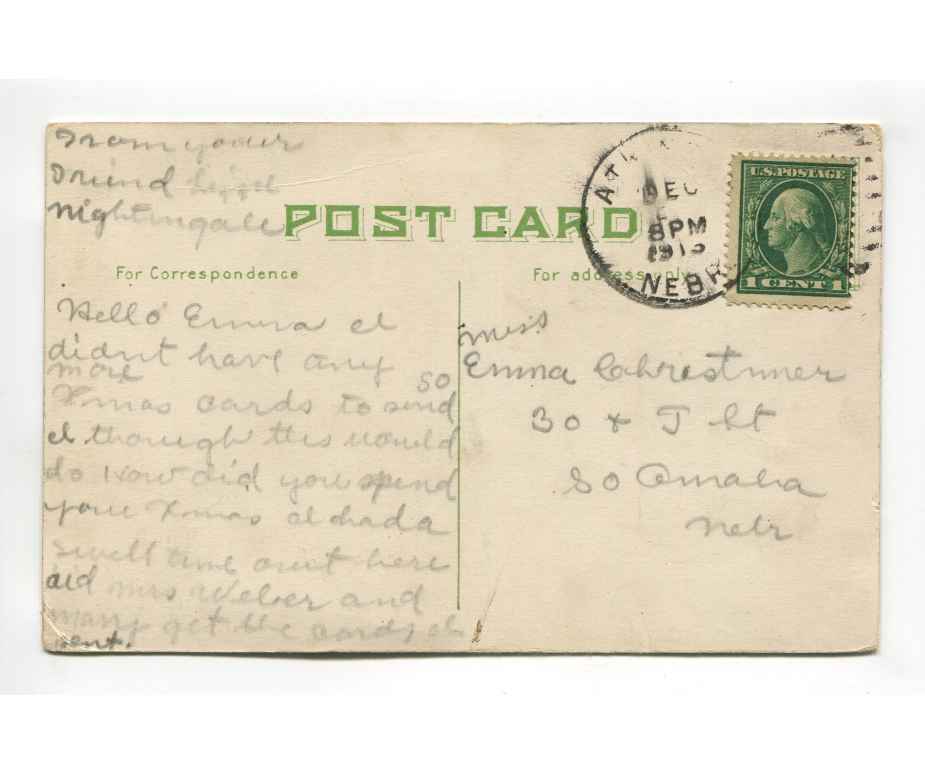 From your
Friend
Nightingale
POST CARD
For Correspondence
For address only
DEC
8PM
NEBR
U.S. POSTAGE
1 CENT 1
Hello Emma I
didnt have any
more so
Xmas cards to send
I though this would
do How did you spend
your Xmas I had a
swell time out here
did Mrs Weber and
Mary get the cards I
sent.
Miss
Emma Christumer
30 + J St
So Omaha
Nebr